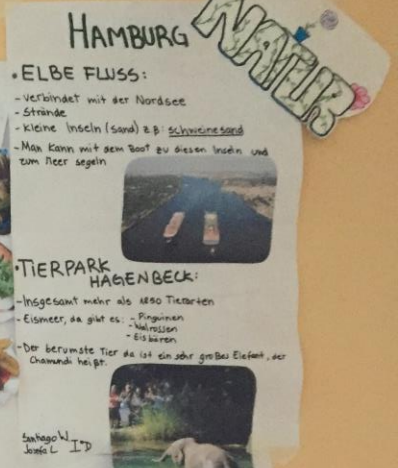 HAMBURG
NATUR
• ELBE FLUSS:
- verbindet mit der Nordsee
- Strände
- kleine Inseln (Sand) z.B: schweinesand
- Man kann mit dem Boot zu diesen Inseln und
zum Meer segeln
• TIERPARK
HAGENBECK:
- Insgesamt mehr als 1850 Tierarten
- Eismeer, da gibt es: - Pinguinen
- Walrossen
- Eisbären
- Der berumste Tier da ist ein sehr großes Elefant, der
Chamundi heißt.
Santiago W
Josefa L I°D